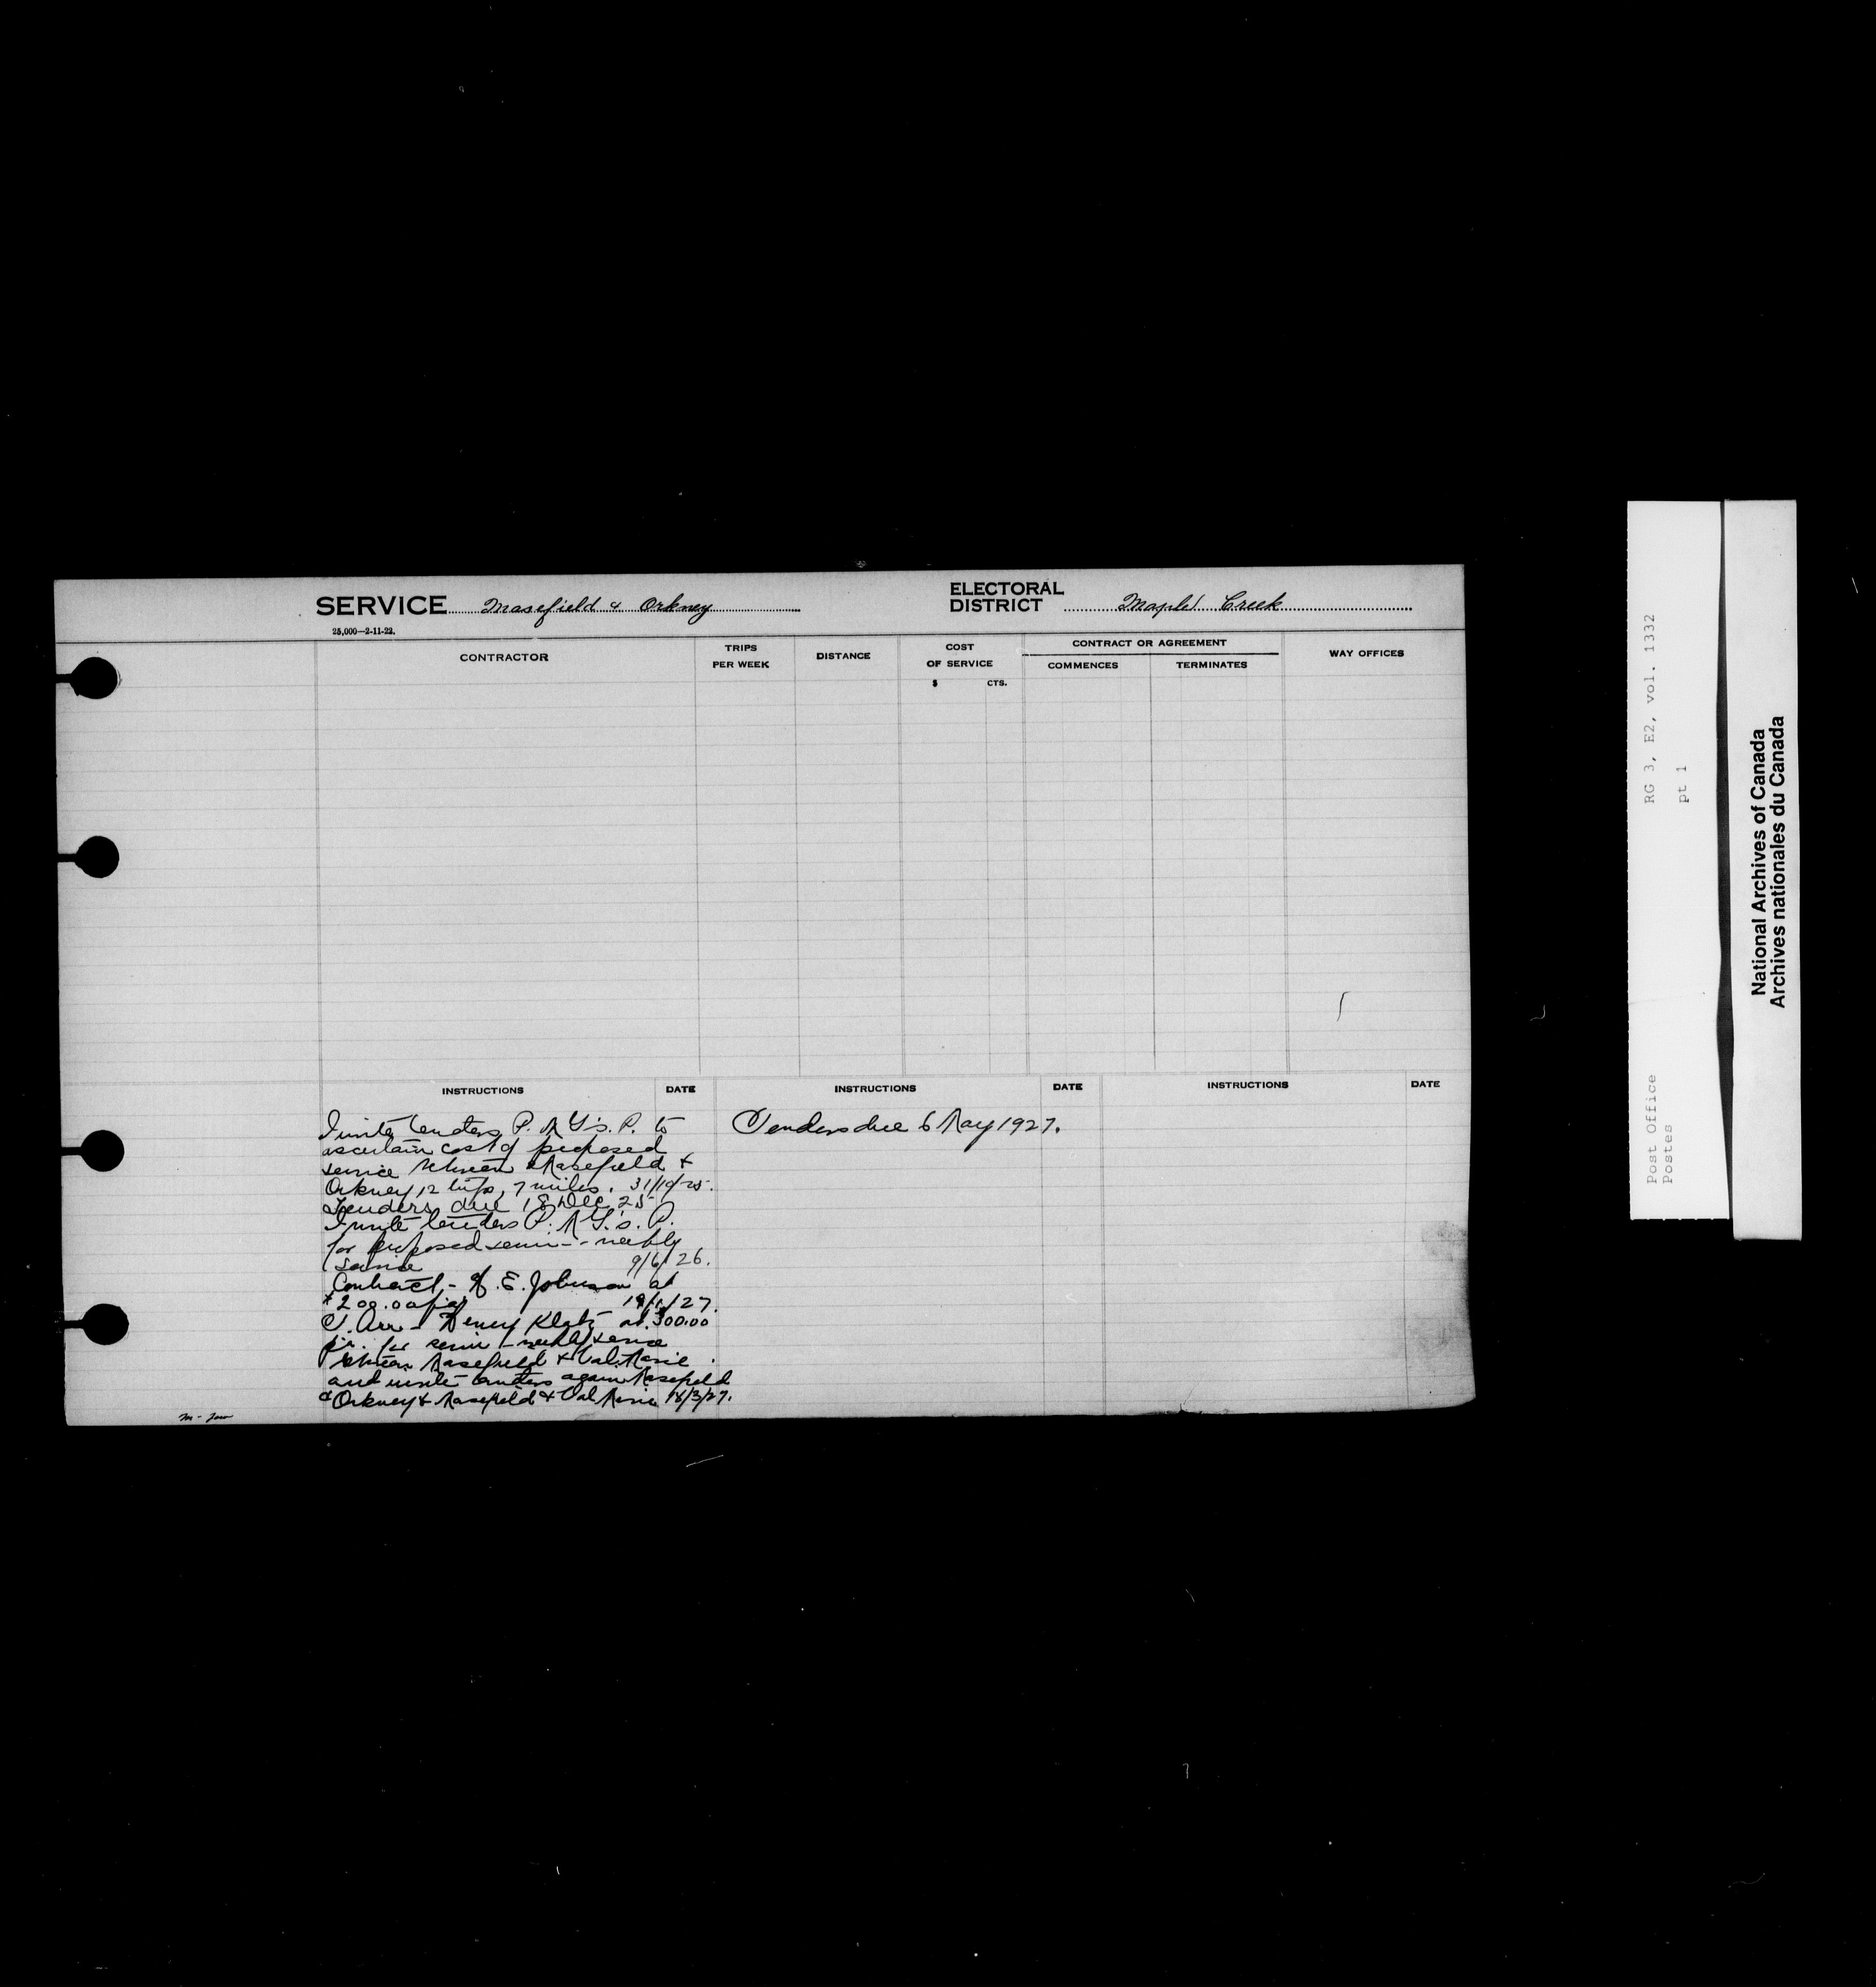 SERVICE Masefield & Orkney
ELECTORAL DISTRICT Maple Creek
25,000—2-11-22.
CONTRACTOR
TRIPS PER WEEK
DISTANCE
COST OF SERVICE
$ CTS.
CONTRACT OR AGREEMENT
COMMENCES
TERMINATES
WAY OFFICES
INSTRUCTIONS
DATE
INSTRUCTIONS
DATE
INSTRUCTIONS
DATE
Invite tenders P. M G's. P. to
ascertain cost of proposed
service between Masefield &
Orkney, 12 trips, 7 miles. 31/10/25.
Tenders due 18 Dec. 25
Invite tenders P. M G's. P.
for proposed semi-weekly
service 9/6/26.
Contract - E. Johnson at
$200.00 p.a. 27.
T. Arr - Henry Klatz at 300.00
p.a. for semi-weekly service
between Masefield & Val Marie
and invite tenders again Masefield
& Orkney & Masefield & Val Marie 18/3/27.
Tenders due 6 May 1927.
M-Jaw
RG 3, E2, vol. 1332
pt 1
Post Office
Postes
National Archives of Canada
Archives nationales du Canada